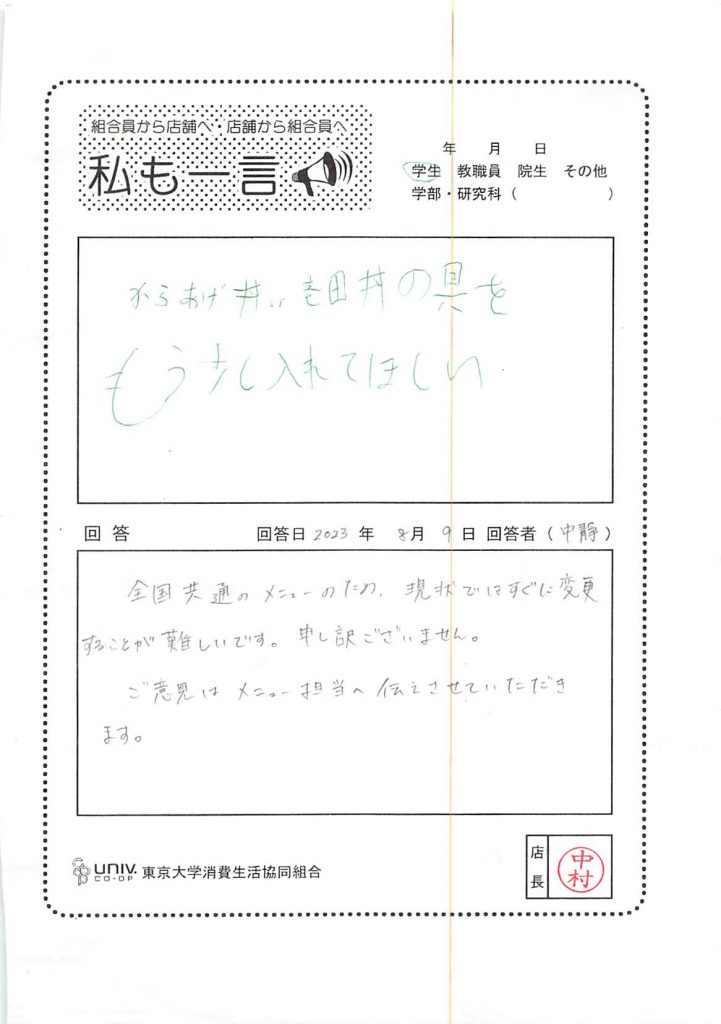 組合員から店舗へ・店舗から組合員へ
私も一言
年 月 日
学生 教職員 院生 その他
学部・研究科( )
からあげ丼 丼の具を
もう少し入れてほしい
回答 回答日 2023 年 8月 9 日 回答者(中静)
全国共通のメニューのため、現状ではすぐに変更
することが難しいです。申し訳ございません。
ご意見はメニュー担当へ伝えさせていただき
ます。
UNIV. CO-OP 東京大学消費生活協同組合
店長
中村